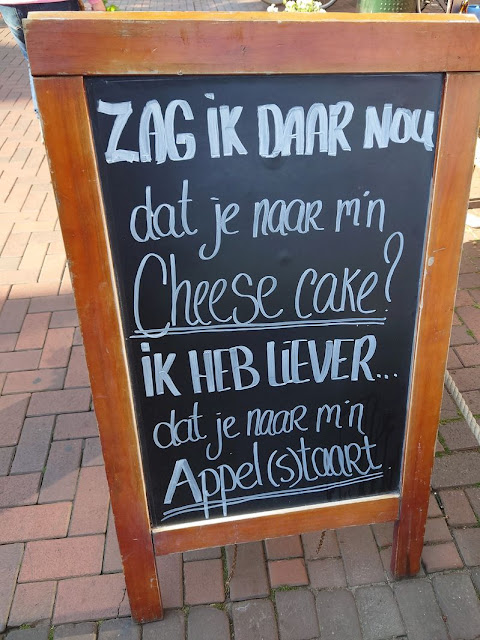 ZAG iK DAAR NOU
dat je naar m'n
Cheese cake?
iK HEB LiEVER...
dat je naar m'n
Appel(s)taart